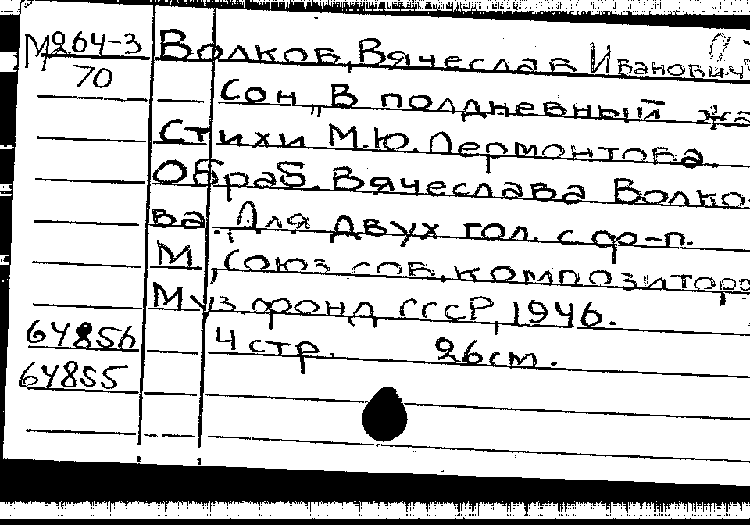 М264-3 Волков, Вячеслав Иванович
70
Сон „В полдневный жа
Стихи М.Ю. Лермонтова.
Обраб. Вячеслава Волко-
ва. Для двух гол. с фо-п.
М., Союз сов. композиторо
Муз. фонд СССР, 1946.
64856 4 стр. 26 см.
64855